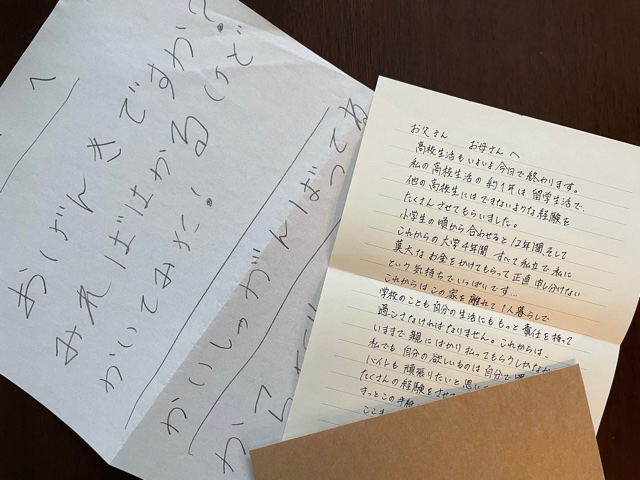 へ
おげんきですか?
みればはかるけど
かいてみた!
かいしゃがんばってね
お父さん　お母さんへ
高校生活もいよいよ今日で終わります。
私の高校生活の約1年は留学生活で、
他の高校生にはできないような経験を
たくさんさせてもらいました。
小学生の頃から合わせると12年間、そして
これからの大学4年間 すべて私立で、私に
莫大なお金をかけてもらって正直申し分けない
という気持ちでいっぱいです…
これからはこの家を離れて1人暮らしで
学校のことも自分の生活にももっと責任を持って
過ごさなければなりません。これからは、
いままで親にばかり払ってもらうしかなか
私でも自分の欲しいものは自分で
バイトも頑張りたいと思い
たくさんの経験をさせて
きっとこの手紙
ここま